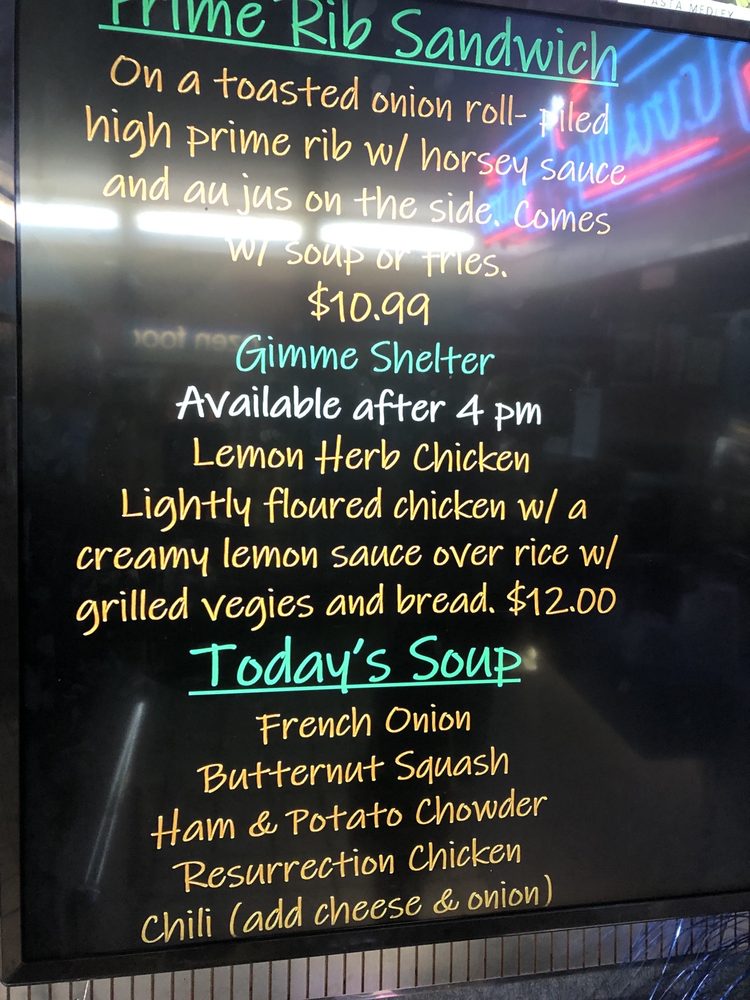 PASTA MEDLEY
Prime Rib Sandwich
On a toasted onion roll- piled
high prime rib w/ horsey sauce
and au jus on the side. Comes
w/ soup or fries.
$10.99
Gimme Shelter
Available after 4 pm
Lemon Herb Chicken
Lightly floured chicken w/ a
creamy lemon sauce over rice w/
grilled vegies and bread. $12.00
Today's Soup
French Onion
Butternut Squash
Ham & Potato Chowder
Resurrection Chicken
Chili (add cheese & onion)